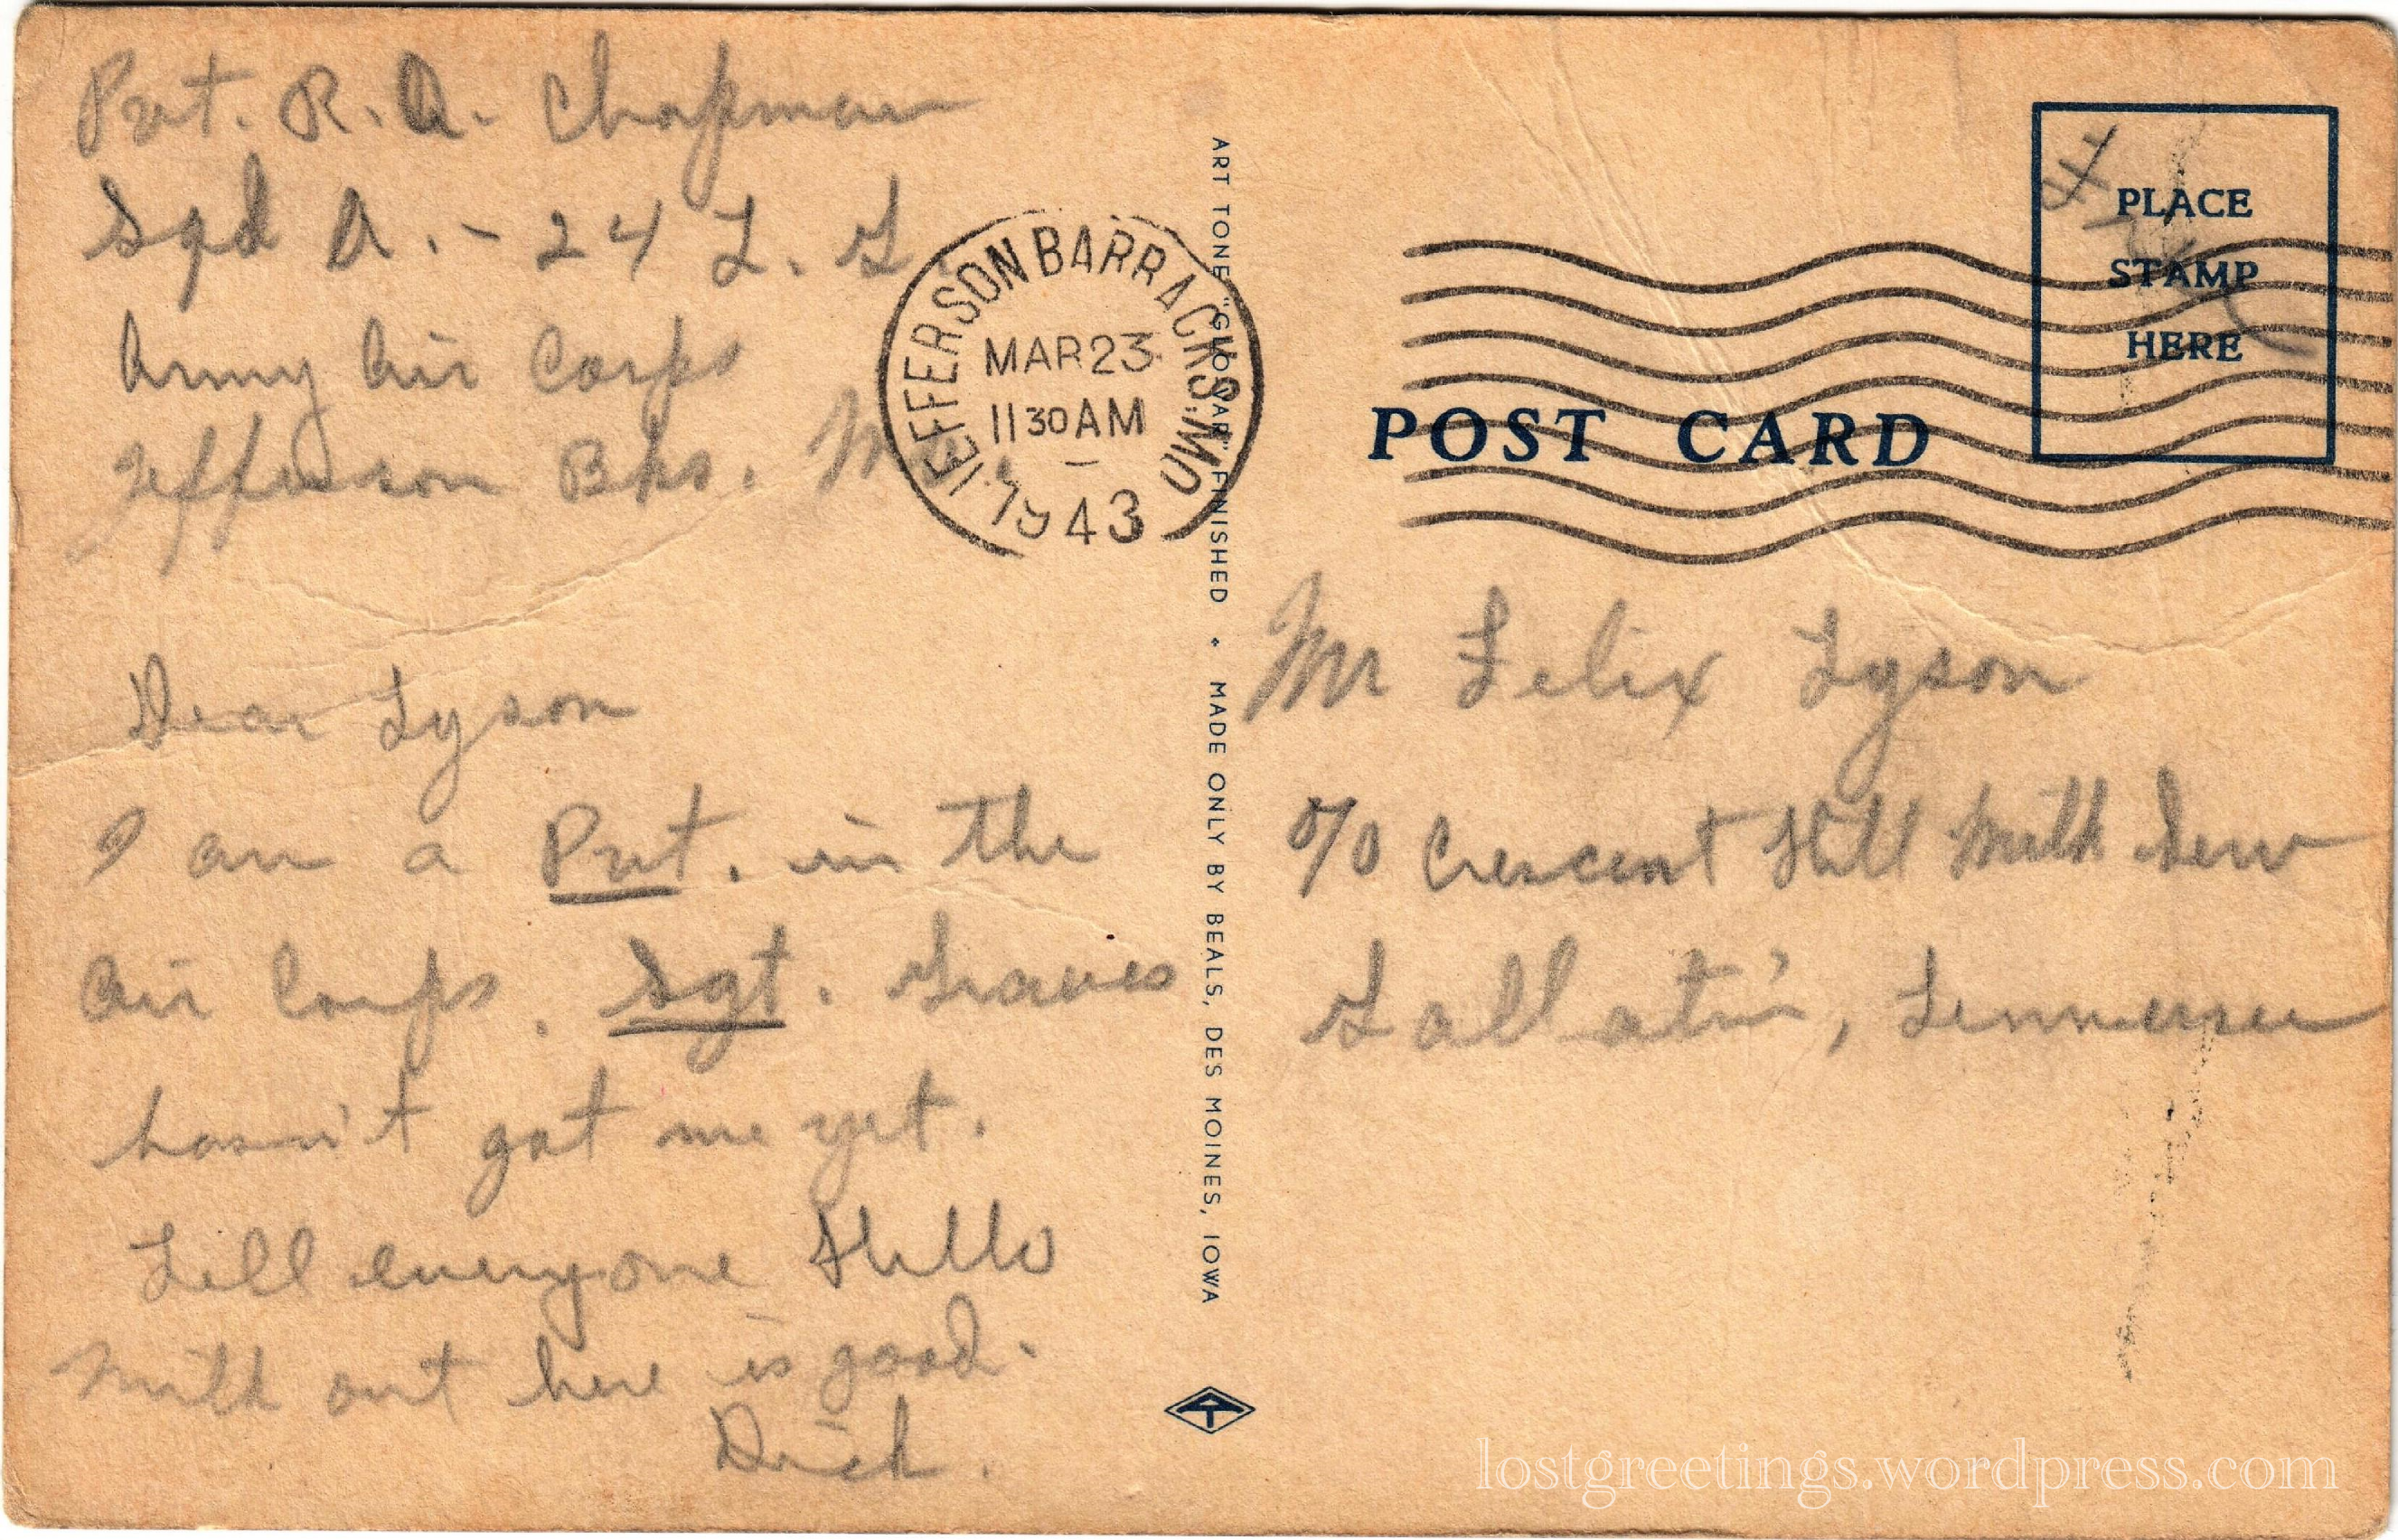 Pvt. R. A. Chapman
Sqd A. - 24 T. G.
Army Air Corps
Jefferson Bks. Mo.
JEFFERSON BARRACKS, MO.
MAR 23
11 30 AM
1943
Dear Tyson
I am a Pvt. in the
Air Corps. Sgt. Graves
hasn't got me yet.
Tell everyone Hello
Milk out here is good.
Dick.
ART TONE "GLO-VAR" FINISHED ♦ MADE ONLY BY BEALS, DES MOINES, IOWA
PLACE
STAMP
HERE
POST CARD
Mr Felix Tyson
c/o Crescent Hill Milk Serv
Gallatin, Tennessee
lostgreetings.wordpress.com